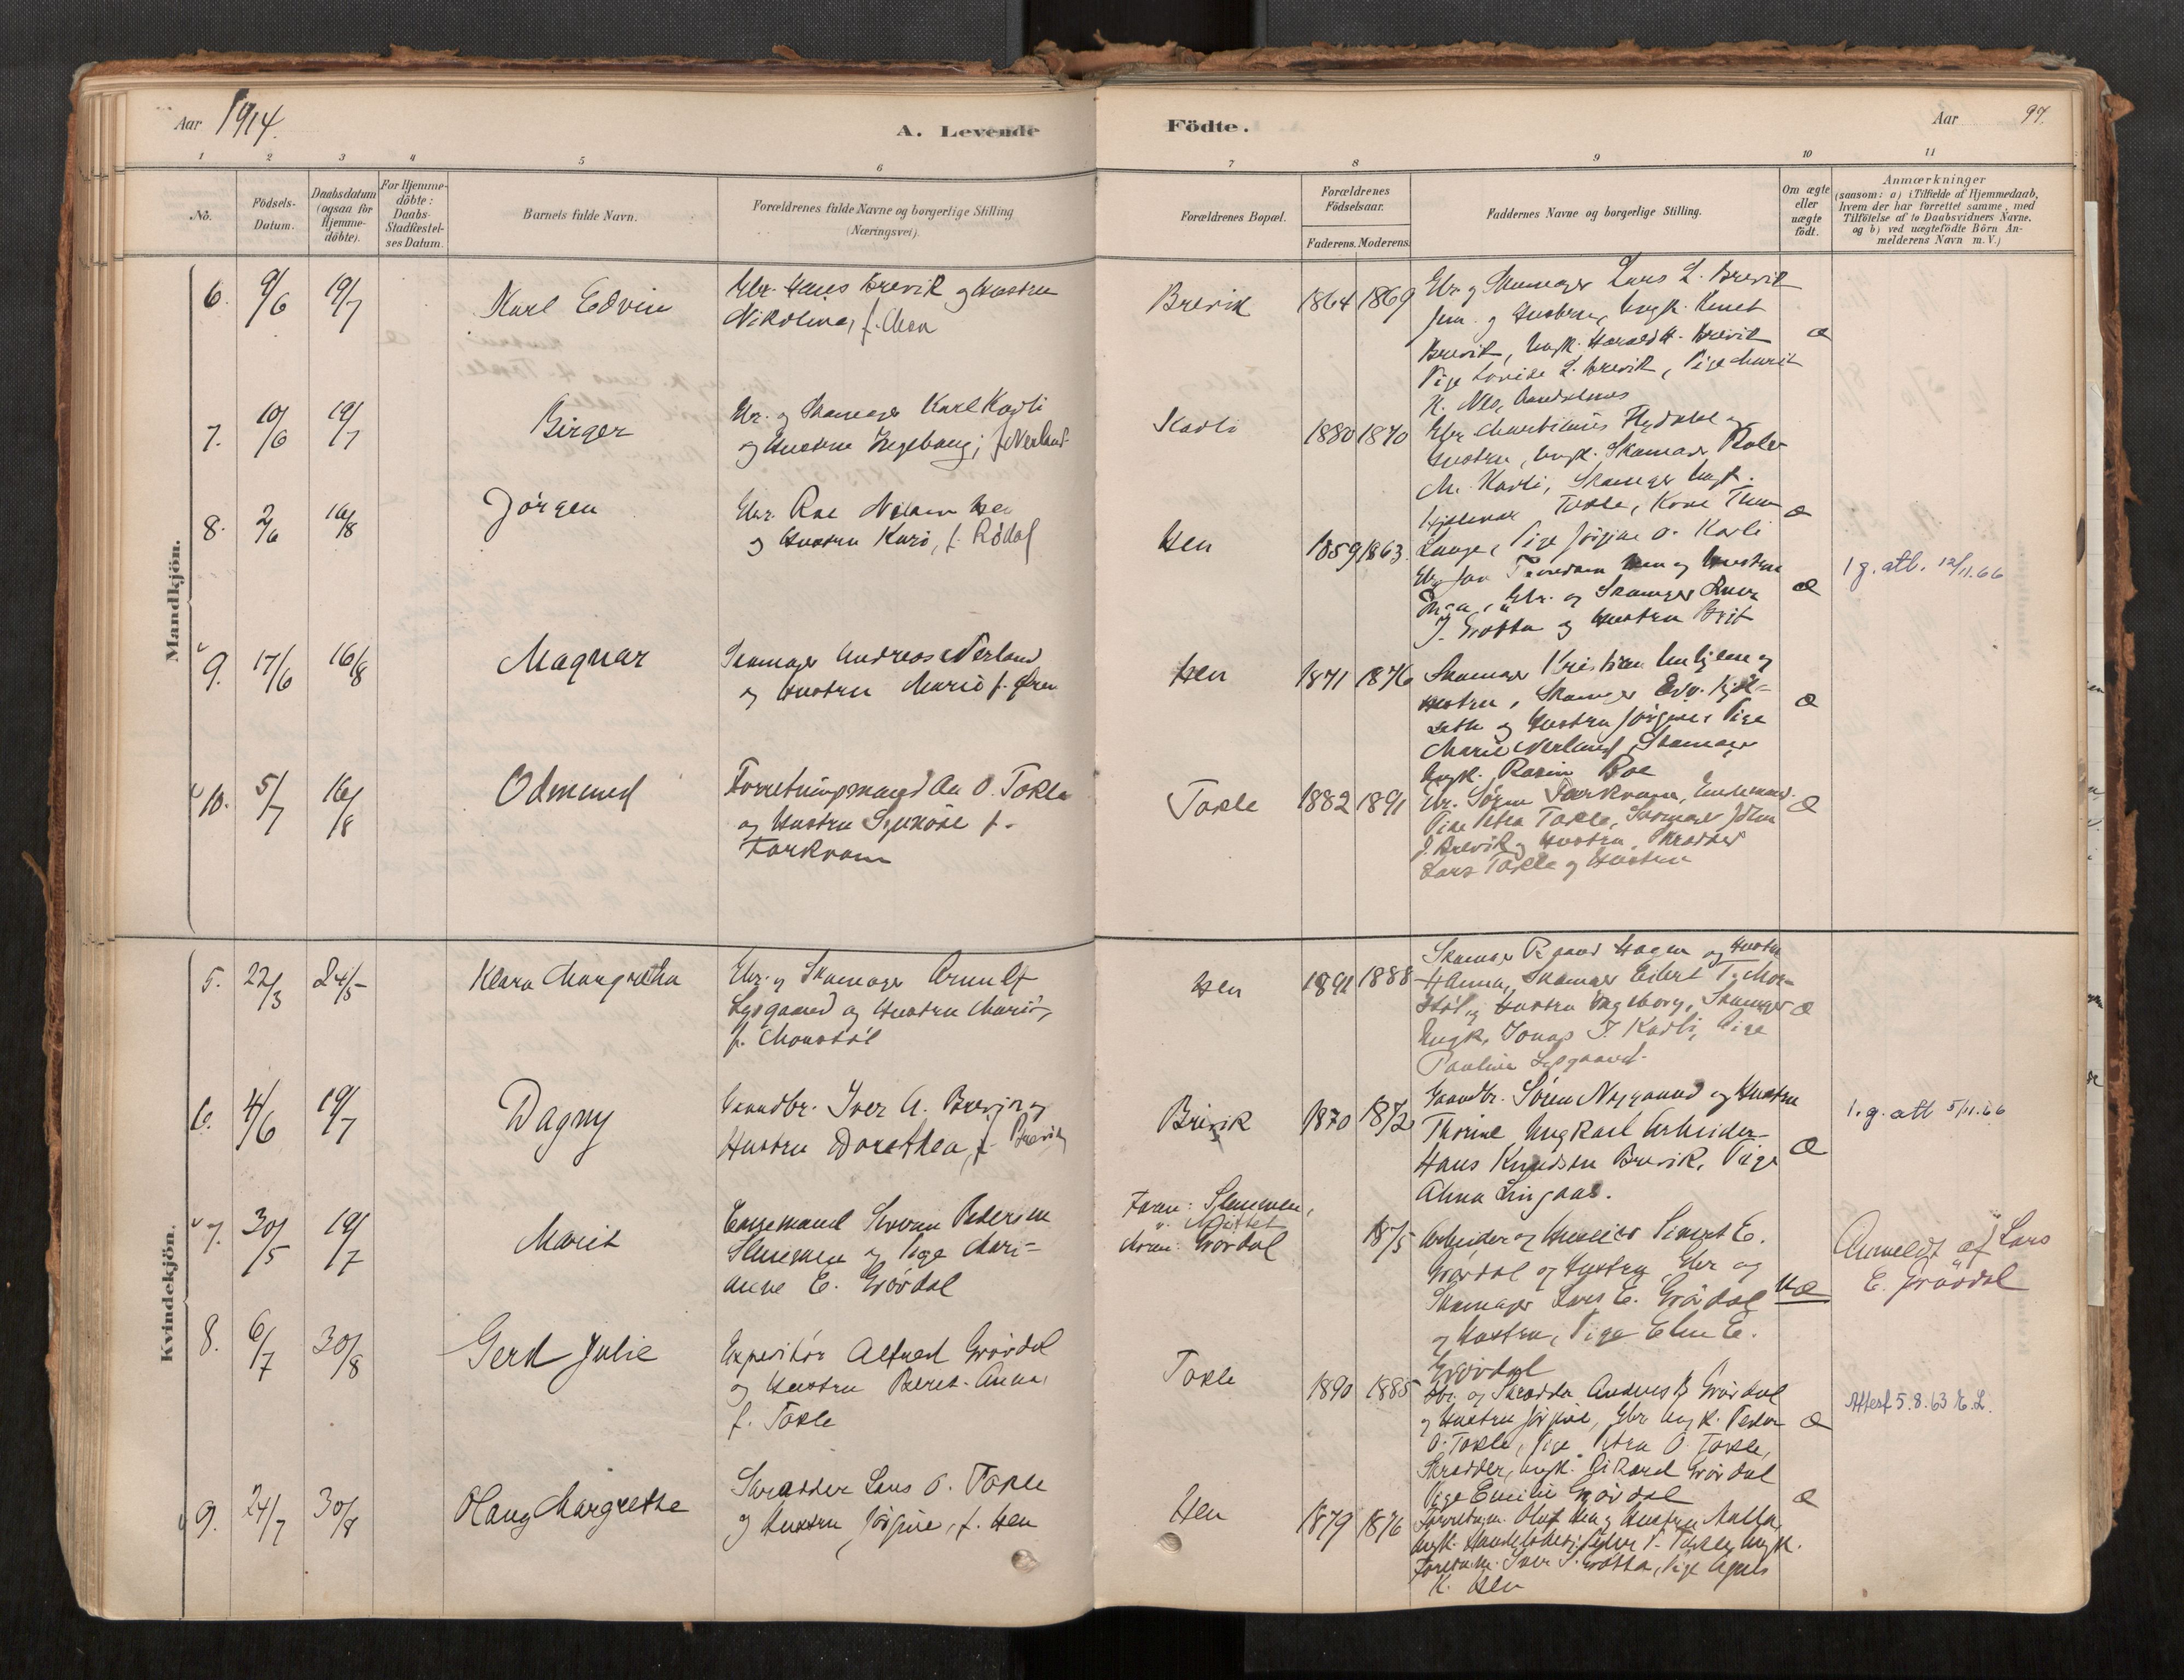 Aar 1914.
A. Levende
Födte.
Aar
97.
1 2 3 4 5 6 7 8 9 10 11
No.
Födsels-
Datum.
Daabsdatum
(ogsaa for
Hjemme-
döbte).
For Hjemme-
döbte:
Daabs-
Stadfæstel-
ses Datum.
Barnets fulde Navn.
Forældrenes fulde Navne og borgerlige Stilling
(Næringsvei).
Forældrenes Bopæl.
Forældrenes
Födselsaar.
Faderens. Moderens.
Faddernes Navne og borgerlige Stilling.
Om ægte
eller
uægte
födt.
Anmærkninger
(saasom: a) i Tilfælde af Hjemmedaab,
hvem der har forrettet samme, med
Tilföielse af to Daabsvidners Navne,
og b) ved uægtefödte Börn An-
melderens Navn m. V.)
Mandkjön.
6. 9/6 19/7 Karl Edvin
Gbr. Hans Brevik og Hustru
Nikoline, f.
Brevik 1864 1869
Gbr. og Skomager Lars L. Brevik
jun. og Hustru, Ungk. Knut
Brevik, Ungk. Harald H. Brevik
Pige Lovise L. Brevik, Pige Marit
æ
7. 10/6 19/7 Birger
Gbr. og Skomager Karl Kavli
og Hustru Ingeborg, f. Nerland
Kavli 1880 1870
Gbr. Martinus Flydahl og
Hustru, Ungk. Skomager
M. Kavli, Skomager Ungk.
Tokle, Kone
Lange, Pige Jörgine O. Kavli
æ
8. 2/6 16/8 Jörgen
Gbr. Roe Nilsen Hen
og Hustru Kari, f. Rödal
Hen 1859 1863.
Gbr. Jon Hen og Hustru
Gbr. og Skomager
J. Grotta og Hustru Brit
æ
1 g. att. 12/11.66
9. 17/6 16/8 Magnar
Skomager Andreas Nerland
og Hustru Marie f.
Hen 1871 1876
Skomager Kristian og
Hustru, Skomager Edv. Kjöl-
seth og Hustru Jörgine, Pige
Marie Nerland, Skomager
Ungk. Rasm. Roe
æ
10. 5/7 16/8 Odmund
Forretningsmand O. Tokle
og Hustru f.
Torkvam
Tokle 1882 1891
Gbr. Sören Torkvam, Enkemand.
Pige Petra Tokle, Skomager John
J. Brevik og Hustru, Skrædder
Lars Tokle og Hustru
æ
Kvindekjön.
5. 22/3 24/5 Klara Margretha
Gbr. og Skomager Arnulf
Lysgaard og Hustru Marie,
f. Monstöl
Hen 1891 1888
Skomager Hagen og Hustru
Hanna, Skomager Edvert T. Mon-
stöl og Hustru Ingeborg, Skomager
Ungk. Jonas J. Kavli, Pige
Pauline Lysgaard.
æ
6. 4/6 19/7 Dagny
Gaardbr. Iver A. Brevik og
Hustru Dorothea, f. Brevik
Brevik 1870 1872
Gaardbr. Sören Nygaard og Hustru
Thorine Ungkarl Arbeider
Hans Knudsen Brevik, Pige
Anna Lingaas.
æ
1. g. att 5/11.66
7. 30/5 19/7 Marit
Enkemand Pedersen
Slemmen og Pige Mari-
anne E. Grövdal
Faren: Slemmen,
Mittet
Moren: Grövdal
1875
Arbeider og Sivert E.
Grövdal og Hustru, Gbr og
Skomager Lars E. Grövdal
og Hustru, Pige E.
Grövdal
uæ
Anmeldt af Lars
E. Grövdal
8. 6/7 30/8 Gerd Julie
Expeditör Alfred Grövdal
og Hustru Beret-Anna,
f. Tokle
Tokle 1890 1885
Gbr. og Skrædder Anders Grövdal
og Hustru Jörgine, Gbr. Ungk. Peder
O. Tokle, Pige Petra O. Tokle,
Skrædder, Ungk. Rikard Grövdal
Pige Emilie Grövdal
æ
Attest 5.8.63 E.L.
9. 24/7 30/8 Olaug Margrethe
Skrædder Lars O. Tokle
og Hustru Jörgine, f. Hen
Hen 1879 1876
Forretn.m. Olaf Hen og Hustru
Ungk. Peder P. Tokle, Ungk.
Forretn.m. Iver J. Grotta, Pige Agnes
K. Hen
æ